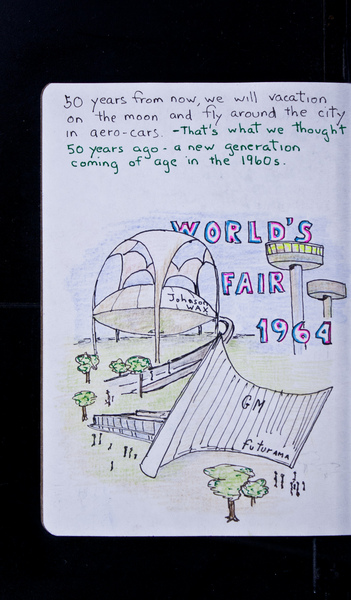 50 years from now, we will vacation
on the moon and fly around the city
in aero-cars. -That's what we thought
50 years ago - a new generation
coming of age in the 1960s.
WORLD'S
FAIR
1964
Johnson
WAX
GM
FUTURAMA